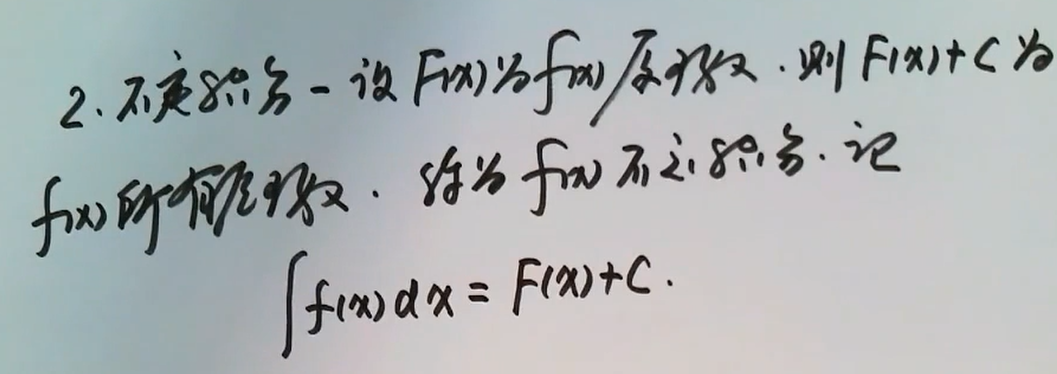 2. 不定积分 - 设 F(x) 为 f(x) 原函数. 则 F(x)+C 为
f(x) 所有原函数. 称为 f(x) 不定积分. 记
∫f(x)dx = F(x)+C.